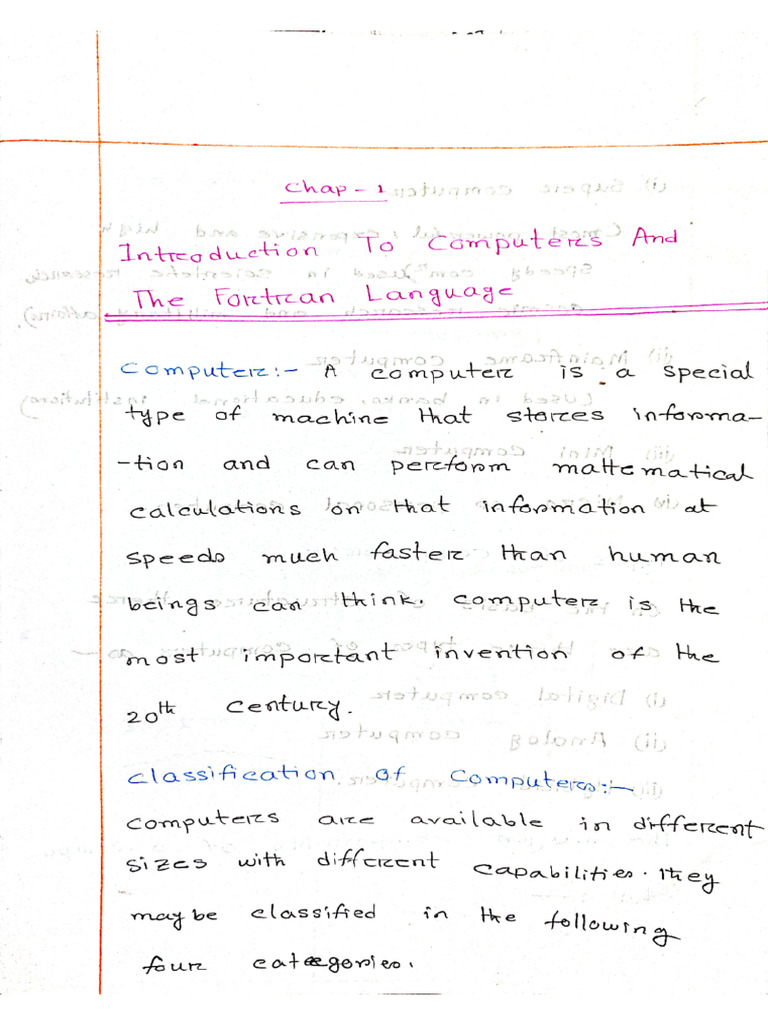 Chap - 1
Introduction To Computers And
The Fortran Language
Computer:- A computer is a special
type of machine that stores informa-
-tion and can perform mathematical
calculations on that information at
speeds much faster than human
beings can think. computer is the
most important invention of the
20th century.
Classification of Computers:-
computers are available in different
sizes with different capabilities. They
may be classified in the following
four categories.